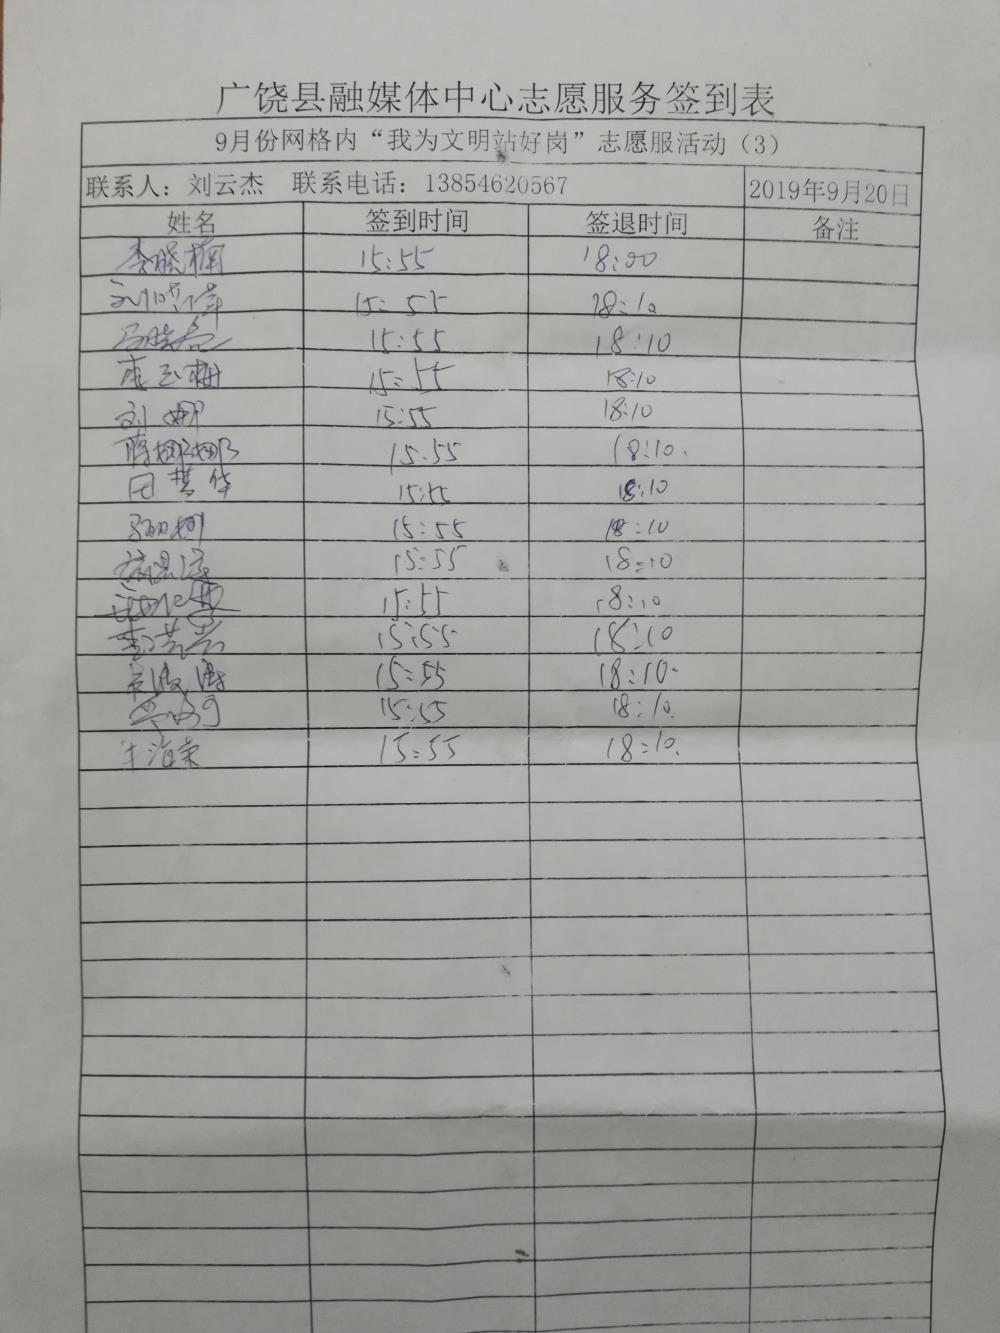 广饶县融媒体中心志愿服务签到表
9月份网格内“我为文明站好岗”志愿服活动（3）
联系人：刘云杰 联系电话：13854620567 2019年9月20日
姓名 签到时间 签退时间 备注
李晓楠 15:55 18:00
15:55 18:10
15:55 18:10
15:55 18:10
刘娜 15:55 18:10
蒋娜娜 15:55 18:10.
田慧华 15:55 18:10
15:55 18:10
15:55 18:10
15:55 18:10
李芸芸 15:55 18:10
15:55 18:10.
15:55 18:10.
牛海荣 15:55 18:10.